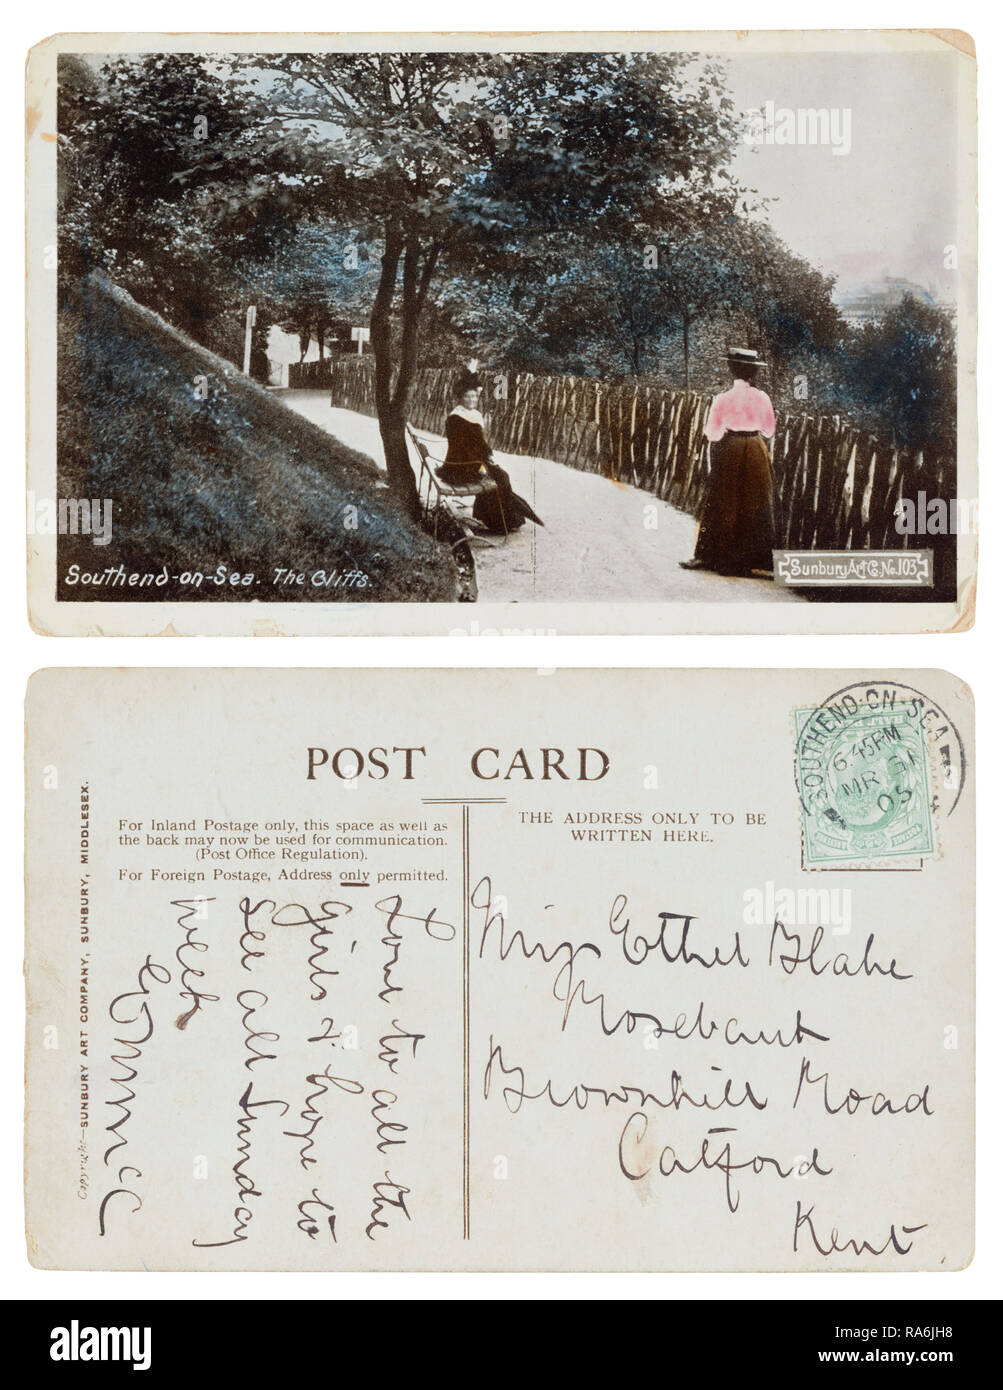 Southend-on-Sea. The Cliffs.
Sunbury Art Co. No. 103
POST CARD
For Inland Postage only, this space as well as
the back may now be used for communication.
(Post Office Regulation).
For Foreign Postage, Address only permitted.
THE ADDRESS ONLY TO BE
WRITTEN HERE.
SOUTHEND-ON-SEA
6.45PM
MR 31
05
Copyright—SUNBURY ART COMPANY, SUNBURY, MIDDLESEX.
Love to all the
girls & hope to
see all Sunday
week
Miss Ethel Blake
Rosebank
Brownhill Road
Catford
Kent
alamy
Image ID: RA6JH8
www.alamy.com